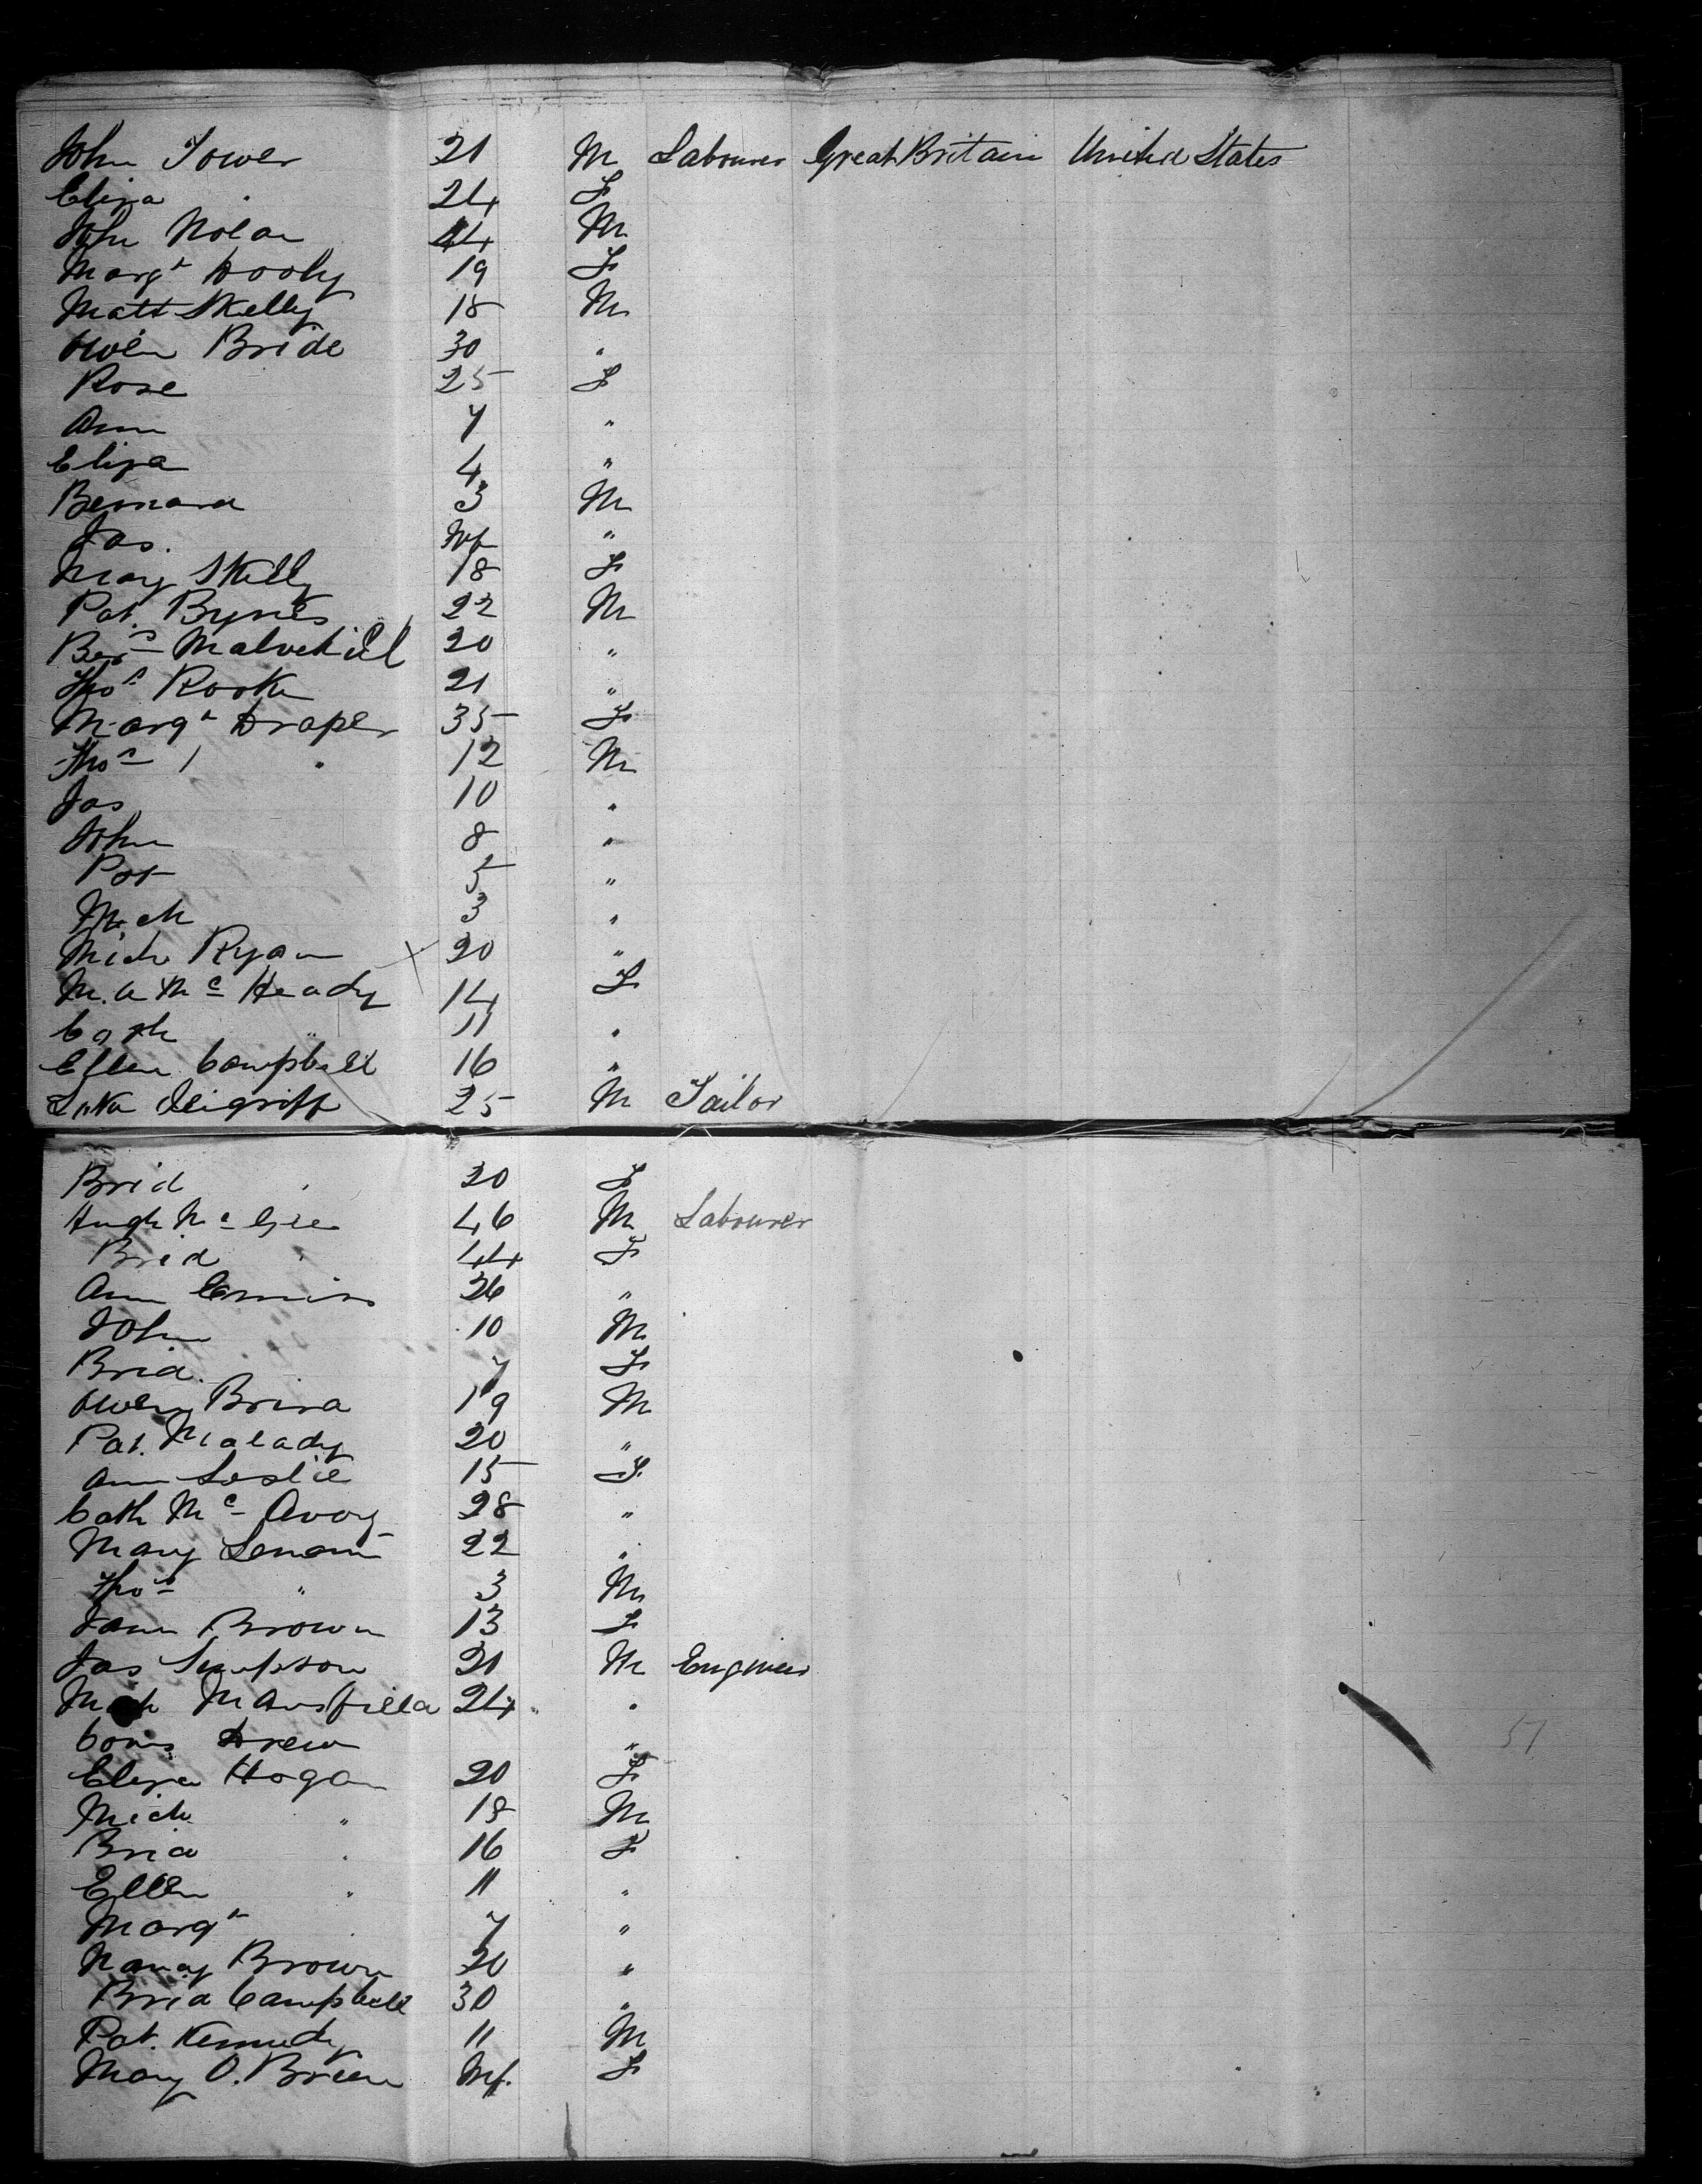 John Tower 21 M Labourer Great Britain United States
Eliza 24 F
John Nolan 44 M
Margt Dooly 19 F
Matt Skelly 18 M
Owen Bride 30 "
Rose 25 F
Ann 7 "
Eliza 4 "
Bernard 3 M
Jas. Inf "
Mary Skelly 18 F
Pat. Byrnes 22 M
Ber 20 "
Thos Rorke 21 "
Margt Draper 35 F
Thos " 12 M
Jas 10 "
John 8 "
Pat 5 "
Mich 3 "
Mich Ryan 20 "
M. A Mc Heady 14 F
Cath " 11 "
Ellen Campbell 16 "
25 M Tailor
Brid " 20 F
Hugh Mc Gee 46 M Labourer
Brid " 44 F
Ann 26 "
John 10 M
Brid. 7 F
Owen 19 M
Pat. Malady 20 "
Ann Leslie 15 F
Cath Mc Avoy 28 "
Mary 22 "
Thos " 3 M
Jane Brown 13 F
Jas Simpson 21 M Engineer
Mich Mansfield 24 "
Drew "
Eliza Hogan 20 F
Mich " 18 M
Brid " 16 F
Ellen " 11 "
Margt " 7 "
Nancy Brown 20 "
Brid Campbell 30 "
Pat. Kennedy 11 M
Mary O. Brien Inf. F
57